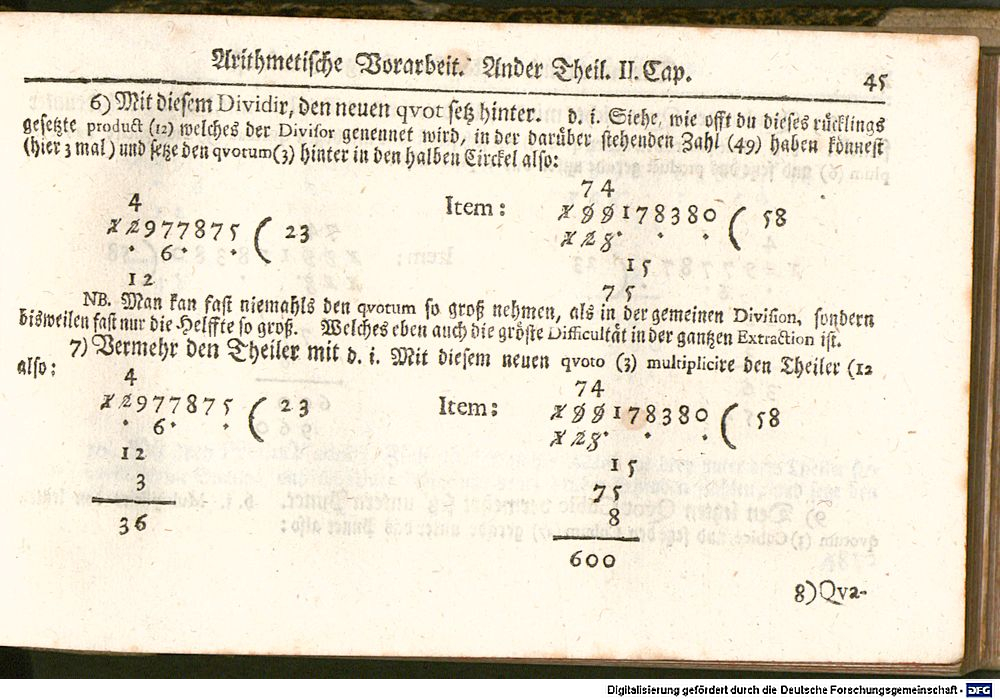 Arithmetische Vorarbeit. Ander Theil. II. Cap.
45
6) Mit diesem Dividir, den neuen qvot setz hinter. d. i. Siehe, wie offt du dieses rücklings
gesetzte product (12) welches der Divisor genennet wird, in der darüber stehenden Zahl (49) haben könnest
(hier 3 mal) und setze den qvotum (3) hinter in den halben Circkel also:
4
12977875 ( 23
. 6. .
12
Item:
74
199178380 ( 58
128. . .
15
75.
NB. Man kan fast niemahls den qvotum so groß nehmen, als in der gemeinen Division, sondern
bisweilen fast nur die Helffte so groß. Welches eben auch die gröste Difficultät in der gantzen Extraction ist.
7) Vermehr den Theiler mit d. i. Mit diesem neuen qvoto (3) multiplicire den Theiler (12
also:
4
12977875 ( 23
. 6. .
12
3
36
Item:
74
199178380 ( 58
128. . .
15
75
8
600
8) Qva-
Digitalisierung gefördert durch die Deutsche Forschungsgemeinschaft - DFG